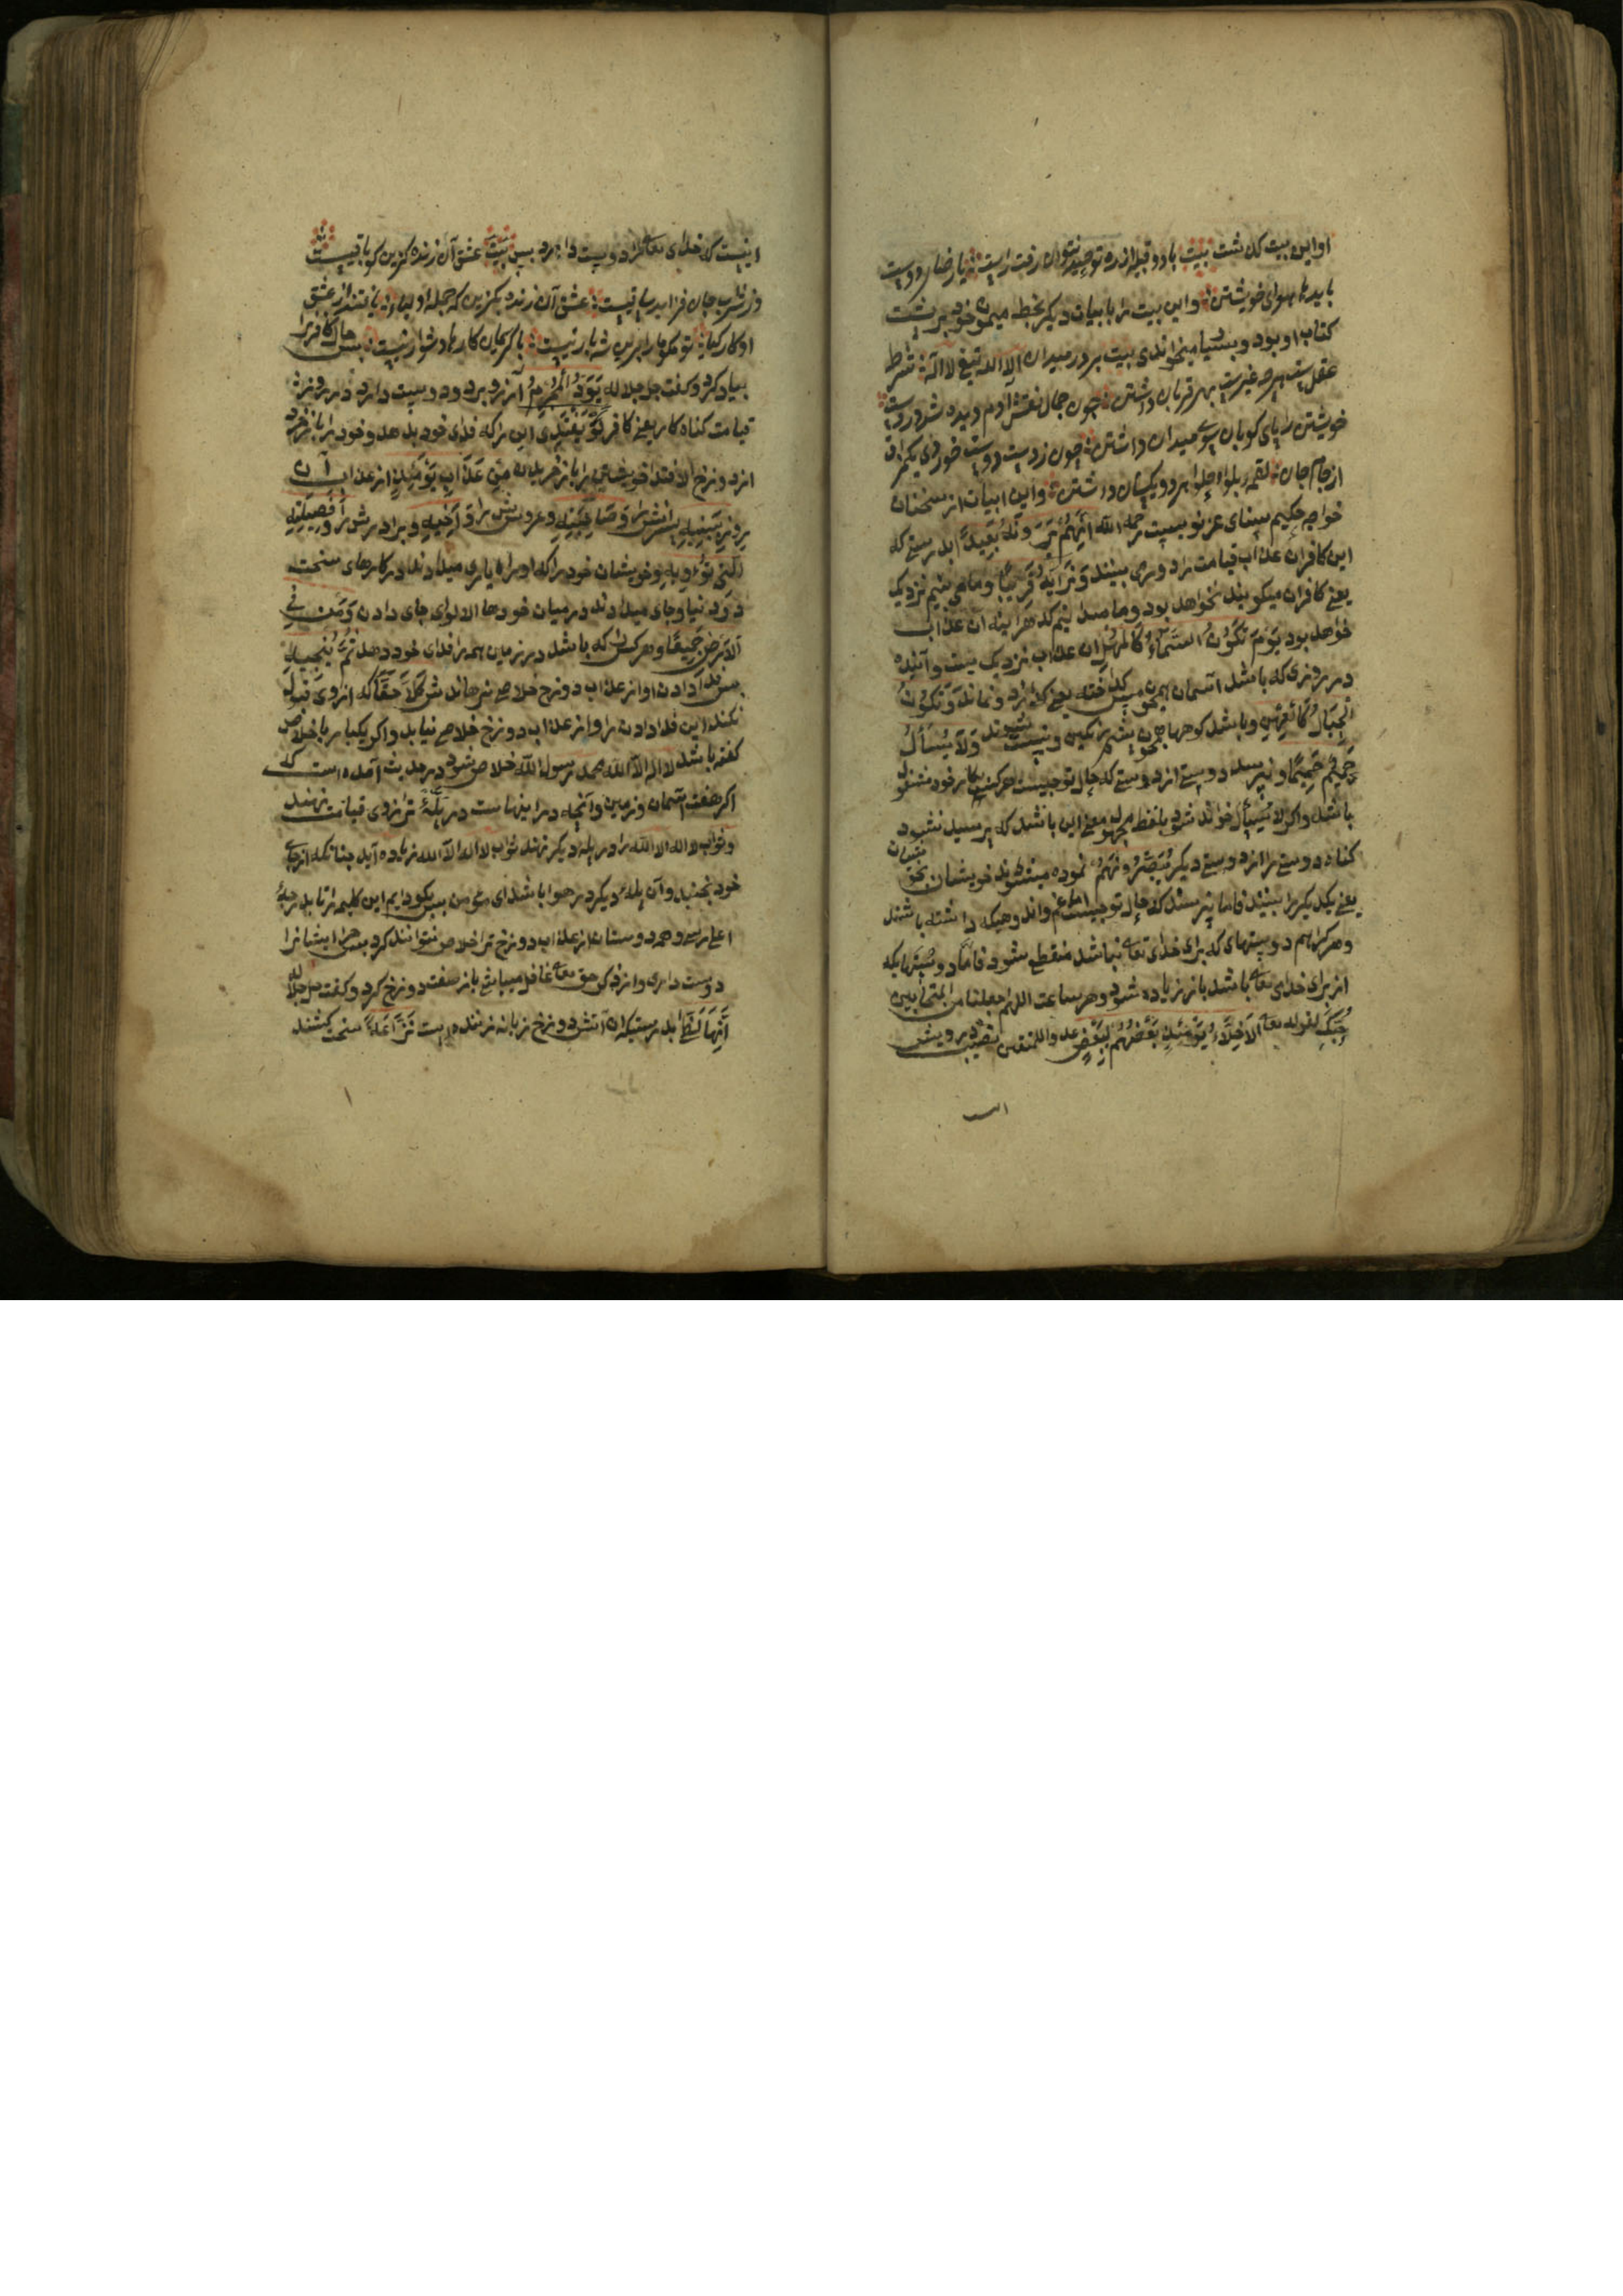 او این بیت گذشت بیت با دو قبله در ره توحید نتوان رفت راست یا رضای دوست
باید یا هوای خویشتن واین بیت را با بیات دیکر بخط میمون خود بر پشت
کتاب او بود و بسیار میخواندی بیت بر در میدان الا الله تیغ لا اله شرط
عقلست هرچه غیرست بهر قربان داشتن چون جمال نقش آدم دیده شد در دوست
خویشتن را پای کوبان سوی میدان داشتن چون ز دست دوست خوردی یکمزاق
از جام جان لقمه بلوا و حلوا هر دو یکسان داشتن واین ابیات از سخنان
خواجه حکیم سنای غزنویست رحمه الله اِنَّهُمْ يَرَوْنَهُ بَعِيدًا بدرستی که
این کافران عذاب قیامت را دوری بینند وَنَرَاهُ قَرِيبًا وما می بینیم نزدیک
یعنی کافران میکویند نخواهد بود وما میدانیم که هراینه آن عذاب
خواهد بود يَوْمَ تَكُونُ السَّمَاءُ كَالْمُهْلِ آن عذاب نزدیک ست وآینده
در روزی که باشد آسمان همچون مس کداخته یعنی بکدازد ونماند وَتَكُونُ
الْجِبَالُ كَالْعِهْنِ وباشد کوهها همچون پشم رنکین ونیست شوند وَلَا يَسْأَلُ
حَمِيمٌ حَمِيمًا ونپرسد دوستی از دوستی که حال تو چیست هر کسی بکار خود مشغول
باشد واکر لا يُسْأَلُ خوانده شود بلفظ مجهول معنی این باشد که پرسیده نشود
کناه دوستی را از دوستی دیکر يُبَصَّرُونَهُمْ نموده میشوند خویشان بخویشان
یعنی یکدیکر را بینند فاما نپرسند که حال تو چیست غم واندوهیکه داشته باشند
وهر کدام دوستیهای که برای خدای تعالی نباشد منقطع شود فاما دوستیهایکه
از برای خدای تعالی باشد باز زیاده شود وهر ساعت اللهم اجعلنا من المتحابین
حُبِّكَ لقوله تعالی الْأَخِلَّاءُ يَوْمَئِذٍ بَعْضُهُمْ لِبَعْضٍ عدو الا المتقین نصیب درویش
است
اینست که خدای تعالی را دوست دارد پس بیت عشق آن زنده کزین کو باقیست
وز شراب جان فزایت ساقیست عشق آن زنده بکزین که جمله اولیاء یافتند از عشق
او کار کیا تو مکو ما را بدین شه بار نیست با کریمان کارها دشوار نیست پس حال کافر را
بیاد کرد وکفت جل جلاله يَوَدُّ الْمُجْرِمُ آرزو برد ودوست دارد در روز
قیامت کناه کار یعنی کافر لَوْ يَفْتَدِي این را که فدای خود بدهد وخود را باز خرد
از دوزخ الافتدا خویشتن را باز خریدن مِنْ عَذَابِ يَوْمِئِذٍ از عذاب آن
روز بِبَنِيهِ پسرانش را وَصَاحِبَتِهِ وعروسش را وَأَخِيهِ وبرادرش را وَفَصِيلَتِهِ
الَّتِي تُؤْوِيهِ وخویشان خود را که او را یاری میدادند در کارهای سخت
در دنیا وجای میدادند در میان خودها الایوای جای دادن وَمَنْ فِي
الْأَرْضِ جَمِيعًا وهر کسی را که باشد در زمین همه را فدای خود دهد ثُمَّ يُنْجِيهِ
پس فدا دادن او از عذاب دوزخ خلاص رهاندش كَلَّا حَقًّا که از وی قبول
نکنند این فدا دادن را واز عذاب دوزخ خلاص نیابد واکر یکبار باخلاص
کفته باشد لا اله الا الله محمد رسول الله خلاص شود در حدیث آمده است که
اکر هفت آسمان وزمین وآنچه در اینهاست در پلهٔ ترازوی قیامت نهند
وثواب لا اله الا الله را در پله دیکر نهند ثواب لا اله الا الله زیاده آید چنانکه از جای
خود بجنبد وآن پلهٔ دیکر در هوا باشد ای مؤمن بس بکو دایم این کلمه را تا بدرجهٔ
اعلی رسی وهمه دوستان از عذاب دوزخ ترا خلاص نتوانند کرد پس چرا ایشانرا
دوست داری واز ذکر حق تعالی غافل میباشی باز صفت دوزخ کرد وکفت جل جلاله
إِنَّهَا لَظَى بدرستیکه آن آتش دوزخ زبانه زننده است نَزَّاعَةً سخت کشنده